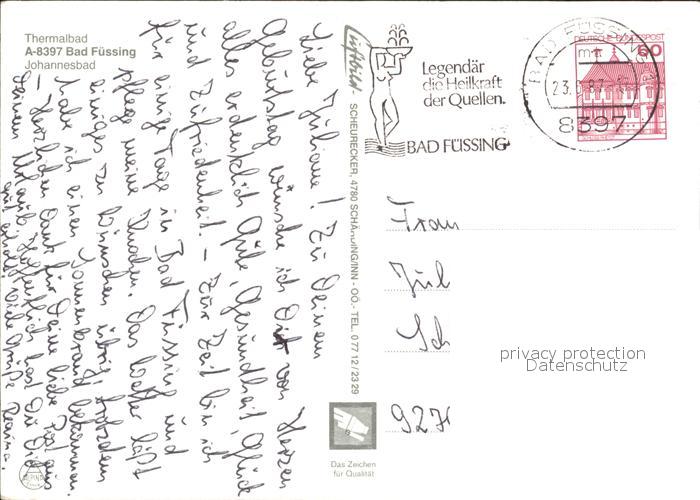 Thermalbad
A-8397 Bad Füssing
Johannesbad
Liebe Juliane! Zu Deinem
Geburtstag wünsche ich Dir von Herzen
alles erdenklich Gute, Gesundheit, Glück
und Zufriedenheit. – Zur Zeit bin ich
für einige Tage in Bad Füssing und
pflege meine Knochen. Das Wetter läßt
einiges zu Wünschen übrig, trotzdem
habe ich einen Sonnenbrand bekommen.
– Herzlichen Dank für Deine liebe Post aus
Deinem Urlaub. Hoffentlich hast Du Dich
gut erholt. Viele Grüße Regina.
Luftbild
SCHEURECKER, 4780 SCHÄRDING/INN - OÖ.- TEL. 0 77 12 / 23 29
Das Zeichen
für Qualität
Legendär
die Heilkraft
der Quellen.
BAD FÜSSING
BAD FÜSSING
23.
8397
DEUTSCHE BUNDESPOST
60
Frau
Jul
Sch
927
privacy protection
Datenschutz